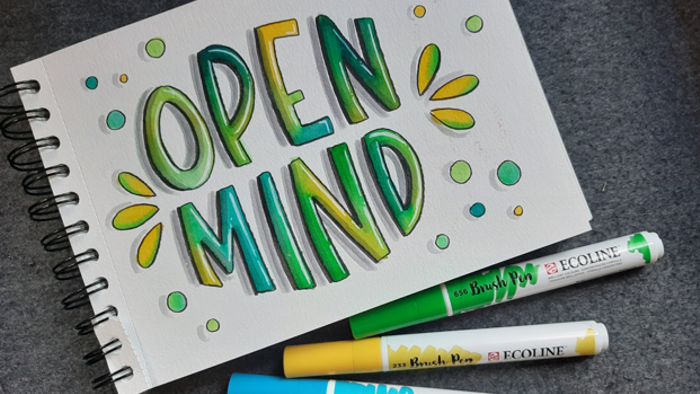 OPEN
MIND
656 Brush Pen ECOLINE
233 Brush Pen ECOLINE